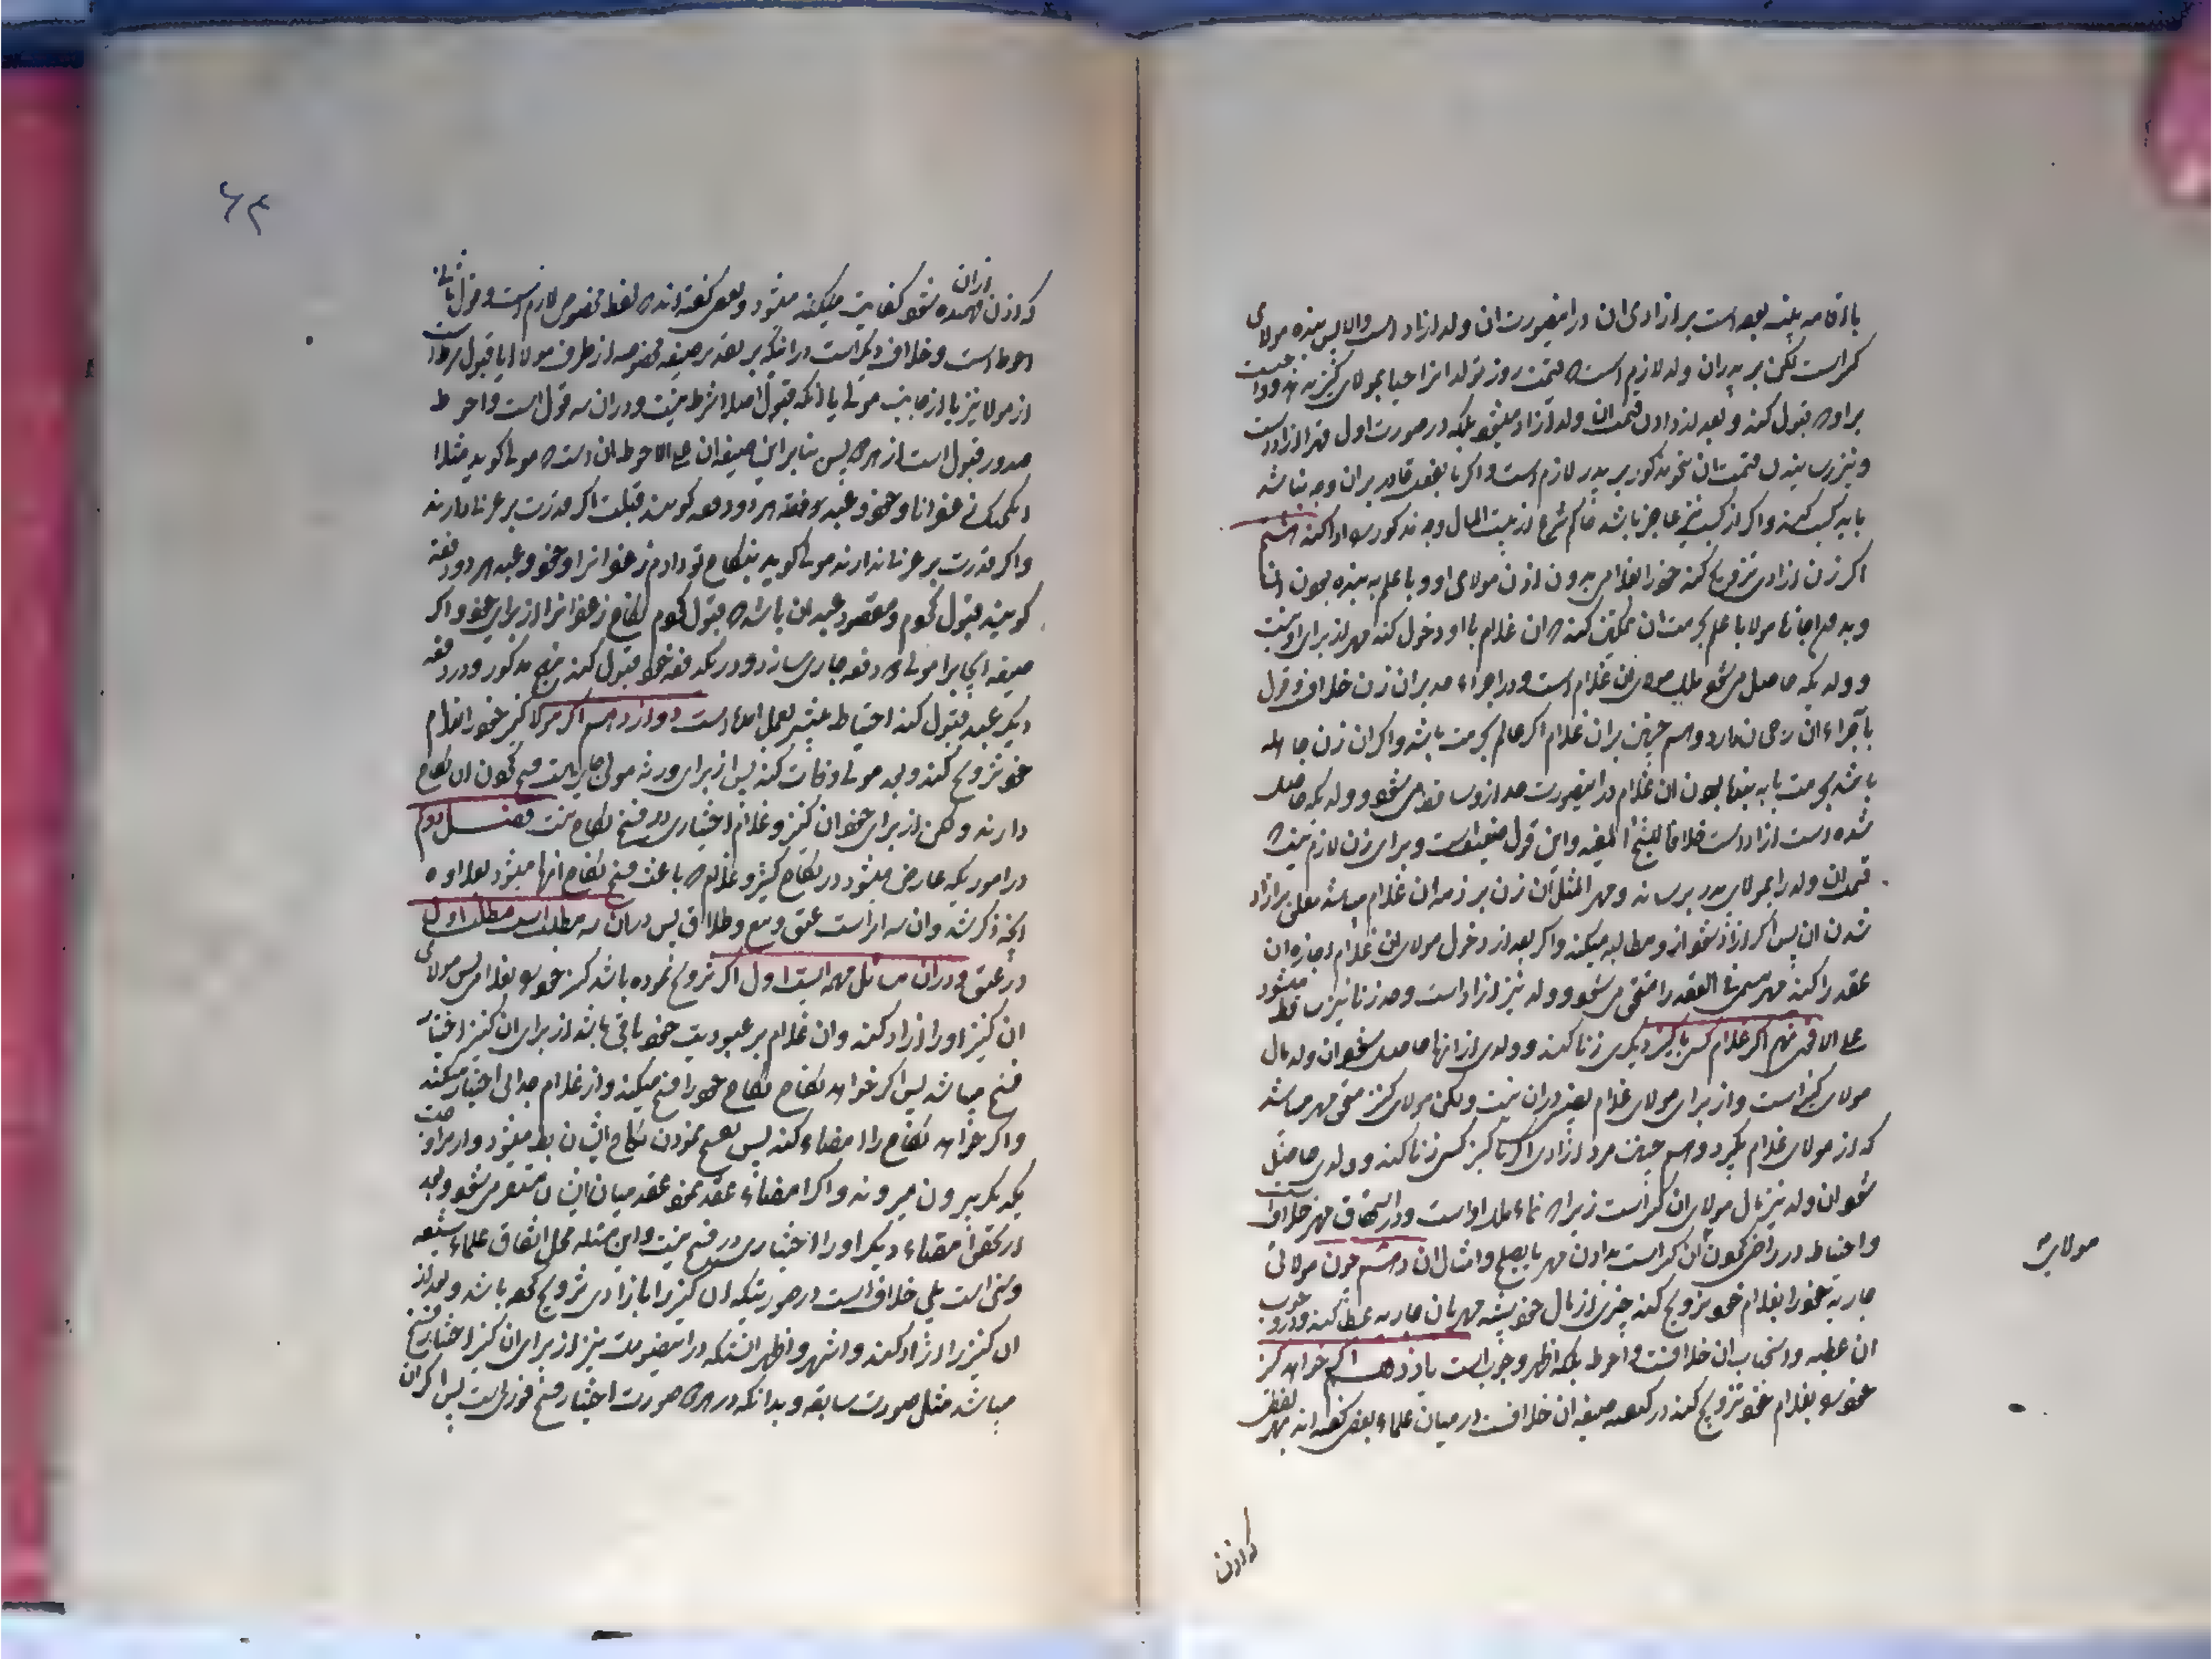 باقامه بینه بعده است بر ازادی ان در اینصورت ان ولد ازاد است والا پس بنده مولای
کنیز است لکن بر پدران ولد لازم است که قیمت روز تولد انرا حیا بمولای کنیز بدهد و واجبست
بر او که قبول کند و بعد از دادن قیمت ان ولد ازاد میشود بلکه در صورت اول قهرا ازاد است
و نیز رسانیدن قیمت ان نحو مذکور بر پدر لازم است و اگر بالفعل قادر بر ان وجه نباشد
باید کسب کند و اگر از کسب نیز عاجز باشد حاکم شرع از بیت المال وجه مذکور را ادا کند هشتم
اگر زن ازادی تزویج کند خود را بغلامی بدون اذن مولای او و با علم به بنده بودن
و بعدم اجازه مولا با علم بحرمت ان تمکین کند که ان غلام با او دخول کند مهر از برای او نیست
و ولدیکه حاصل می شود ملک مولای ان غلام است و در اجراء حد بر ان زن خلاف و قول
باجراء ان رجحان دارد و هم چنین بر ان غلام اگر عالم بحرمت باشد و اگر ان زن جاهله
باشد بحرمت یا به بنده بودن ان غلام در اینصورت حد از او ساقط می شود و ولدیکه حاصل
شده است ازاد است خلافا للشیخ المفید و این قول ضعیف است و برای زن لازم نیست که
قیمت ان ولد را بمولای پدر برساند و مهر المثل ان زن بر ذمه ان غلام میباشد معلق بر ازاد
شدن ان پس اگر ازاد شود از او مطالبه میکند و اگر بعد از دخول مولای ان غلام اجازه ان
عقد را کند مهر مسمی فی العقد را مستحق می شود و ولد نیز ازاد است و حد زنا نیز ساقط میشود
علی الاقوی نهم اگر غلام کسی با کنیز دیگری زنا کند و ولدی از انها حاصل شود ان ولد مال
مولای کنیز است و از برای مولای غلام نصیبی در ان نیست ولکن مولای کنیز مستحق مهر میباشد
که از مولای غلام بگیرد و هم چنین مرد ازادی اگر با کنیز کسی زنا کند و ولدی حاصل
شود ان ولد نیز مال مولای ان کنیز است زیرا که نماء ملک او است و در استحقاق مهر خلاف است
و احتیاط در راضی نمودن ان کنیز است بدادن مهر یا بصلح و امثال ان دهم چون مولائی
مولای
جاریه خود را بغلام خود تزویج کند چیزی از مال خود بشبه مهر بان جاریه عطا کند و در وجوب
ان عطیه و استحباب ان خلافست و احوط بلکه اظهر وجوب است یازدهم اگر خواهد کنیز
خود را بغلام خود تزویج کند در کیفیت صیغه ان خلافست در میان علماء بعضی گفته اند بهر لفظی
که اذن
که اذن از ان فهمیده شود کفایت میکند میشود و بعضی گفته اند که لفظ مخصوص لازم است و قول ثانی
احوط است و خلاف دیگر است در اینکه بر بعد بر صیغه مخصوصه از طرف مولا ایا قبول شرط است
از مولا نیز یا از جانب مولی یا انکه قبول اصلا شرط نیست و در ان سه قول است و احوط
صدور قبول است از هر دو پس بنابراین صیغه ان علی الاحوط ان است که مولی گوید مثلا
انکحتک زعفرانا و خود و عبد دفعه هر دو دفعه گویند قبلت اگر قدرت بر عربی دارند
و اگر قدرت بر عربی ندارند مولی گوید بنکاح تو دادم زعفران را و خود و عبد هر دو دفعه
گویند قبول نمودم و مقصود عبد ان باشد که قبول نمودم نکاح زعفران را از برای خود و اگر
صیغه ایجاب را مولی دو دفعه جاری سازد و در یکدفعه خود قبول کند بنهج مذکور و در دفعه
دیگر عبد قبول کند احتیاط بیشتر بعمل امده است دوازدهم اگر مولا کنیز خود را بغلام
خود تزویج کند و بعد مولی وفات کند پس از برای ورثه مولی جایز است فسخ نمودن ان نکاح
دارند ولکن از برای خود ان کنیز و غلام اختیاری در فسخ نکاح نیست فصل دوم
در اموریکه عارض میشود در نکاح کنیز و غلام که باعث فسخ نکاح انها میشود بعلاوه
انچه ذکر شد و ان سه امر است عتق و بیع و طلاق پس در ان سه مطلب است مطلب اول
در عتق و در ان مسائل مهمه است اول اگر تزویج نموده باشد کنیز خود را بغلامی پس مولای
ان کنیز او را ازاد کند و ان غلام بر عبودیت خود باقی باشد از برای ان کنیز اختیار
فسخ میباشد پس اگر خواهد نکاح خود را فسخ میکند و از غلام جدائی اختیار میکند
و اگر خواهد نکاح را امضاء کند پس بفسخ نمودن نکاح ایشان بهم میخورد و از مزاوجت
یکدیگر بیرون میروند و اگر امضاء عقد نمود عقد میان ایشان مستقر می شود و بعد
از تحقق امضاء دیگر او را اختیاری در فسخ نیست و این مسئله محل اتفاق علماء شیعه
و سنی است بلی خلاف است در صورتیکه ان کنیز را با ازادی تزویج کرده باشد و بعد از
ان کنیز را ازاد کند و اشهر و اظهر انستکه در اینصورت نیز از برای ان کنیز اختیار فسخ
میباشد مثل صورت سابقه و بدانکه در هر دو صورت اختیار فسخ فوریست پس اگر ان
۶۴